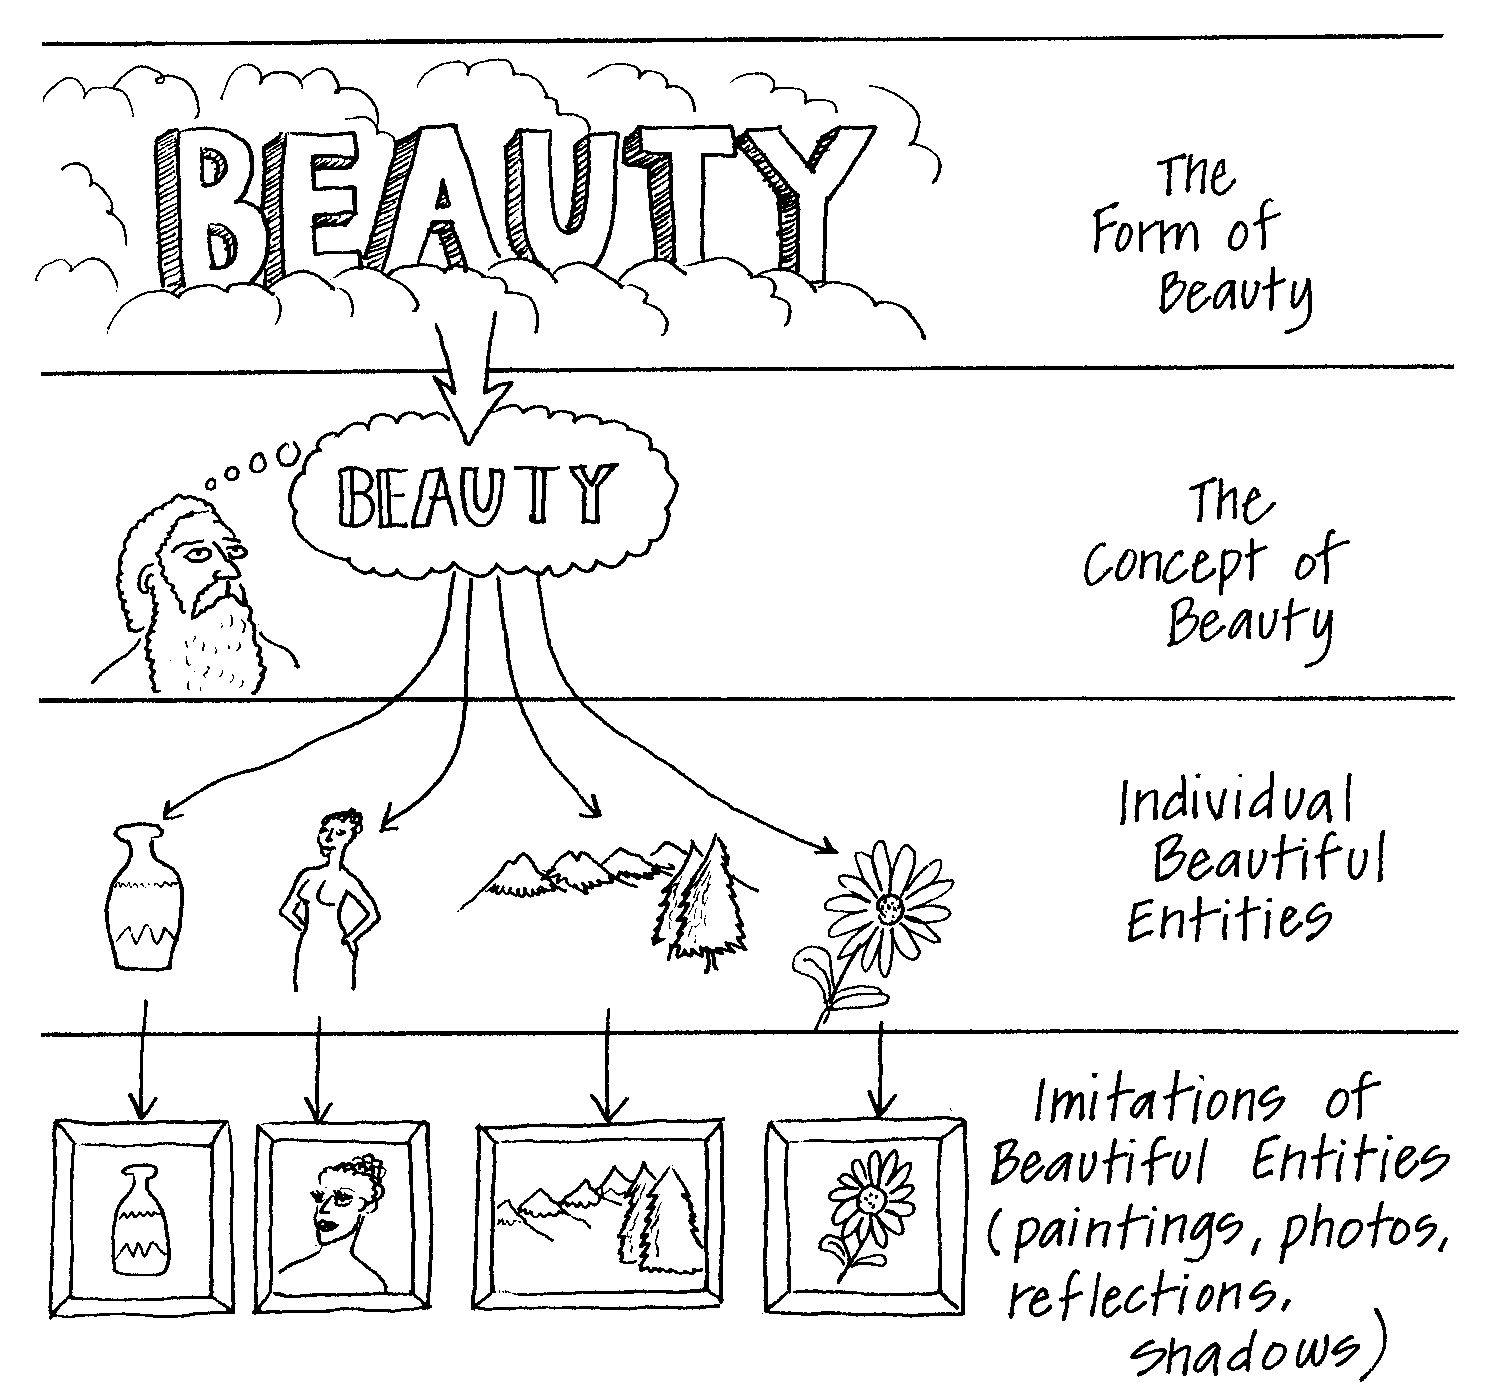 BEAUTY
The
Form of
Beauty
BEAUTY
The
Concept of
Beauty
Individual
Beautiful
Entities
Imitations of
Beautiful Entities
(paintings, photos,
reflections,
shadows)